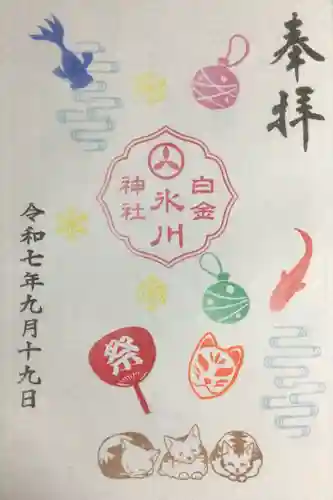 奉拝
白金
氷川
神社
祭
令和七年九月十九日